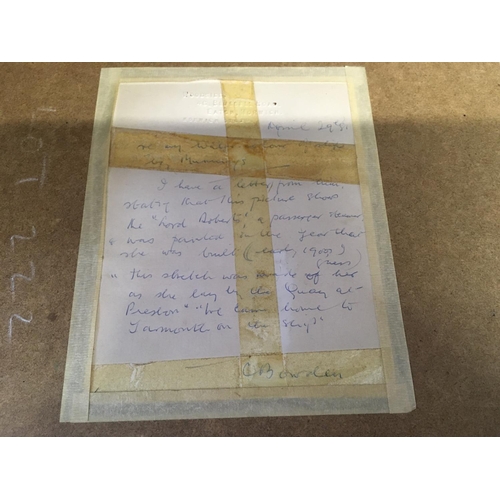 April 29
re my water colour
by Munnings
I have a letter from him,
stating that this picture shows
the "Lord Roberts", a passenger steamer
& was painted in the year that
she was built (early 1900s)
(guess)
"this sketch was made of her
as she lay by the Quay at
Preston" "We came home to
Yarmouth on the ship"
Bowden
722 10